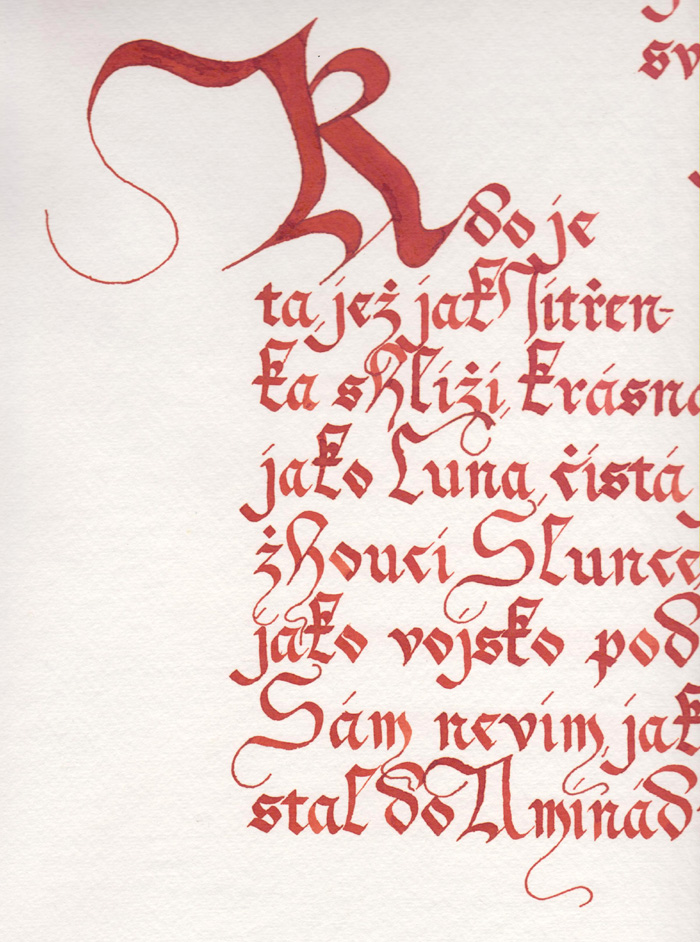 sv
Kdo je
ta, jež jak Jitřen-
ka shlíží, krásná
jako Luna, čistá
žhoucí Slunce
jako vojsko pod
Sám nevím, jak
stal do Aminád